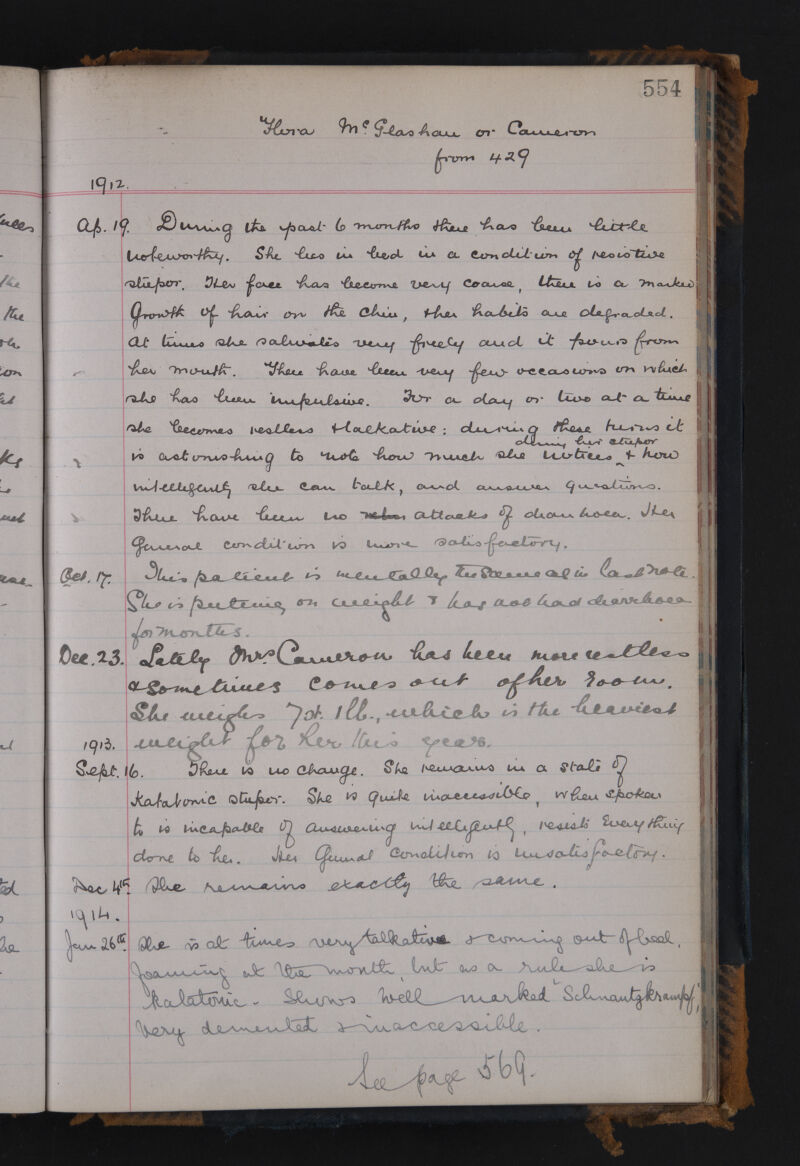 554
Flora McGlashan or Cameron
from 429
1912.
Ap. 19. During the past 6 months there has been little
noteworthy. She lies in bed in a condition of resistive
stupor. Her face has become very coarse, there is a marked
growth of hair on the chin, & her habits are degraded.
At times she salivates very freely and it pours from
her mouth. There have been very few occasions on which
she has been impulsive. For a day or two at a time
she becomes restless & talkative: during these turns it
during her stupor
is astonishing to note how much she notices ^ & how
intelligently she can talk, and answer questions.
There have been no attacks of diarrhoea. Her
general condition is more satisfactory.
Oct. 17. This patient is mentally the same as in last note.
She is putting on weight & has not had diarrhoea
for months.
Dec. 23. Lately Mrs Cameron has been more restless
& sometimes comes out of her room.
She weighs 7st. 1lb., which is the heaviest
1913. weight for her this year.
Sept. 16. There is no change. She remains in a state of
Katatonic stupor. She is quite inaccessible, when spoken
to is incapable of answering intelligently, resists everything
done to her. Her general condition is unsatisfactory.
Dec 4th She remains exactly the same.
1914.
Jan 26th She is at times very talkative & coming out of bed,
foaming at the mouth, but as a rule she is
katatonic - Shows well marked "Schnautzkrampf",
Very demented & inaccessible.
See page 569.